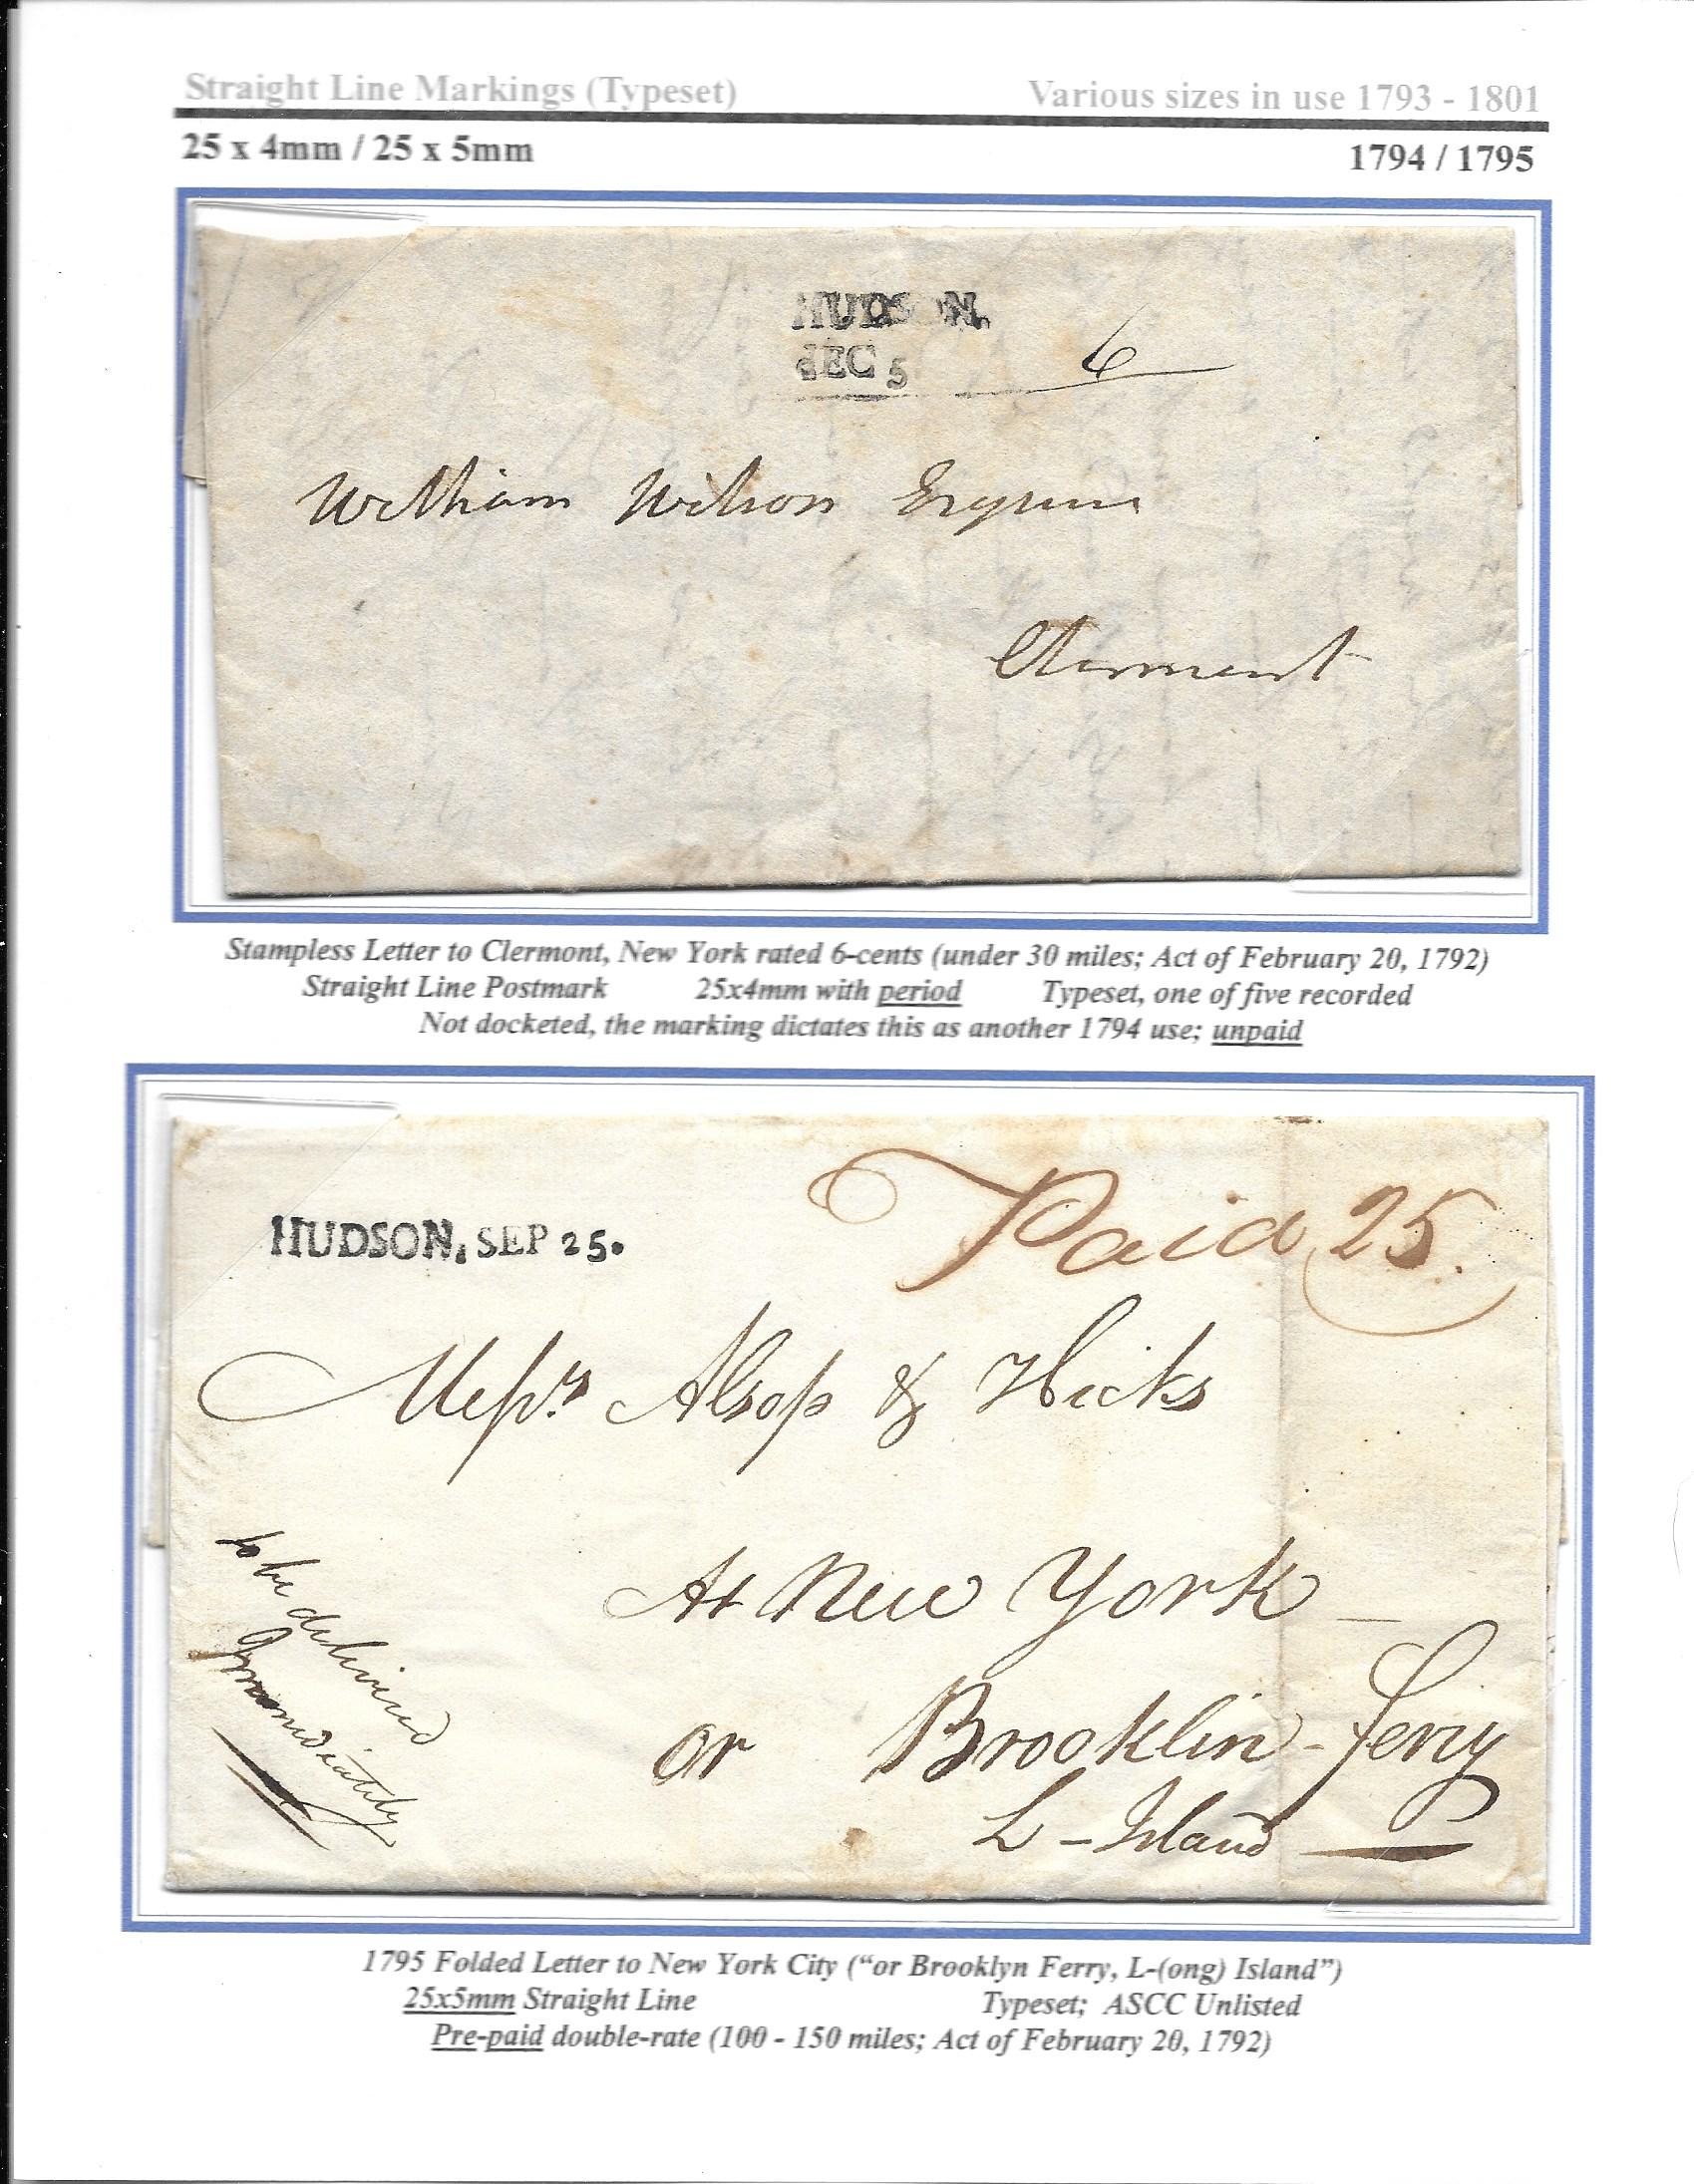 Straight Line Markings (Typeset) Various sizes in use 1793 - 1801
25 x 4mm / 25 x 5mm 1794 / 1795
HUDSON.
dEC 5 6
William Wilson Esquire
Clermont
Stampless Letter to Clermont, New York rated 6-cents (under 30 miles; Act of February 20, 1792)
Straight Line Postmark 25x4mm with period Typeset, one of five recorded
Not docketed, the marking dictates this as another 1794 use; unpaid
Paid 25.
HUDSON. SEP 25.
Messrs Alsop & Hicks
At New York
or Brooklin-ferry
L - Island
to be delivered
Immediately
1795 Folded Letter to New York City (“or Brooklyn Ferry, L-(ong) Island”)
25x5mm Straight Line Typeset; ASCC Unlisted
Pre-paid double-rate (100 - 150 miles; Act of February 20, 1792)